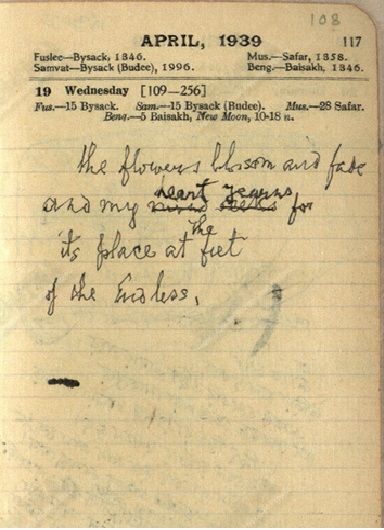 108
APRIL, 1939 117
Fuslee—Bysack, 1346. Mus.—Safar, 1358.
Samvat—Bysack (Budee), 1996. Beng.—Baisakh, 1346.
19 Wednesday [109—256]
Fus.—15 Bysack. Sam.—15 Bysack (Budee). Mus.—28 Safar.
Beng.—5 Baisakh, New Moon, 10-18 n.
the flowers blosom and fade
heart yearns
and my mind seeks for
the
its place at feet
of the Endless.